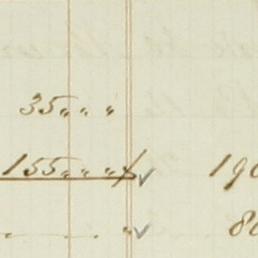 35 " "
155 " " 190
" 80